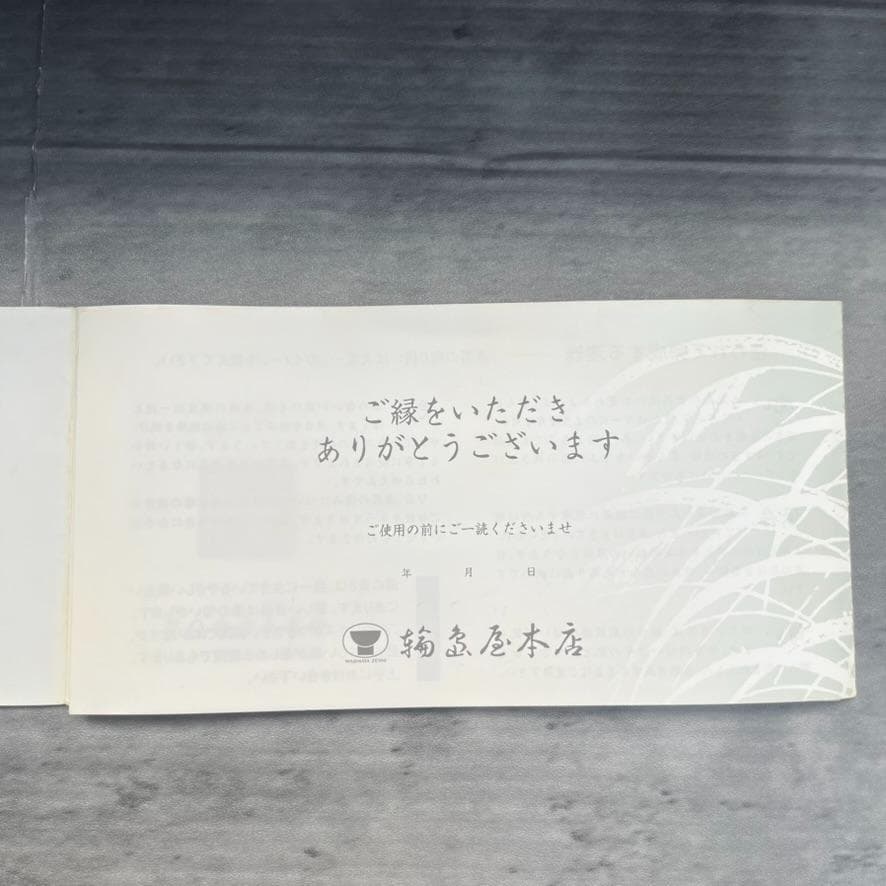 ご縁をいただき
ありがとうございます
ご使用の前にご一読くださいませ
年 月 日
輪島屋本店